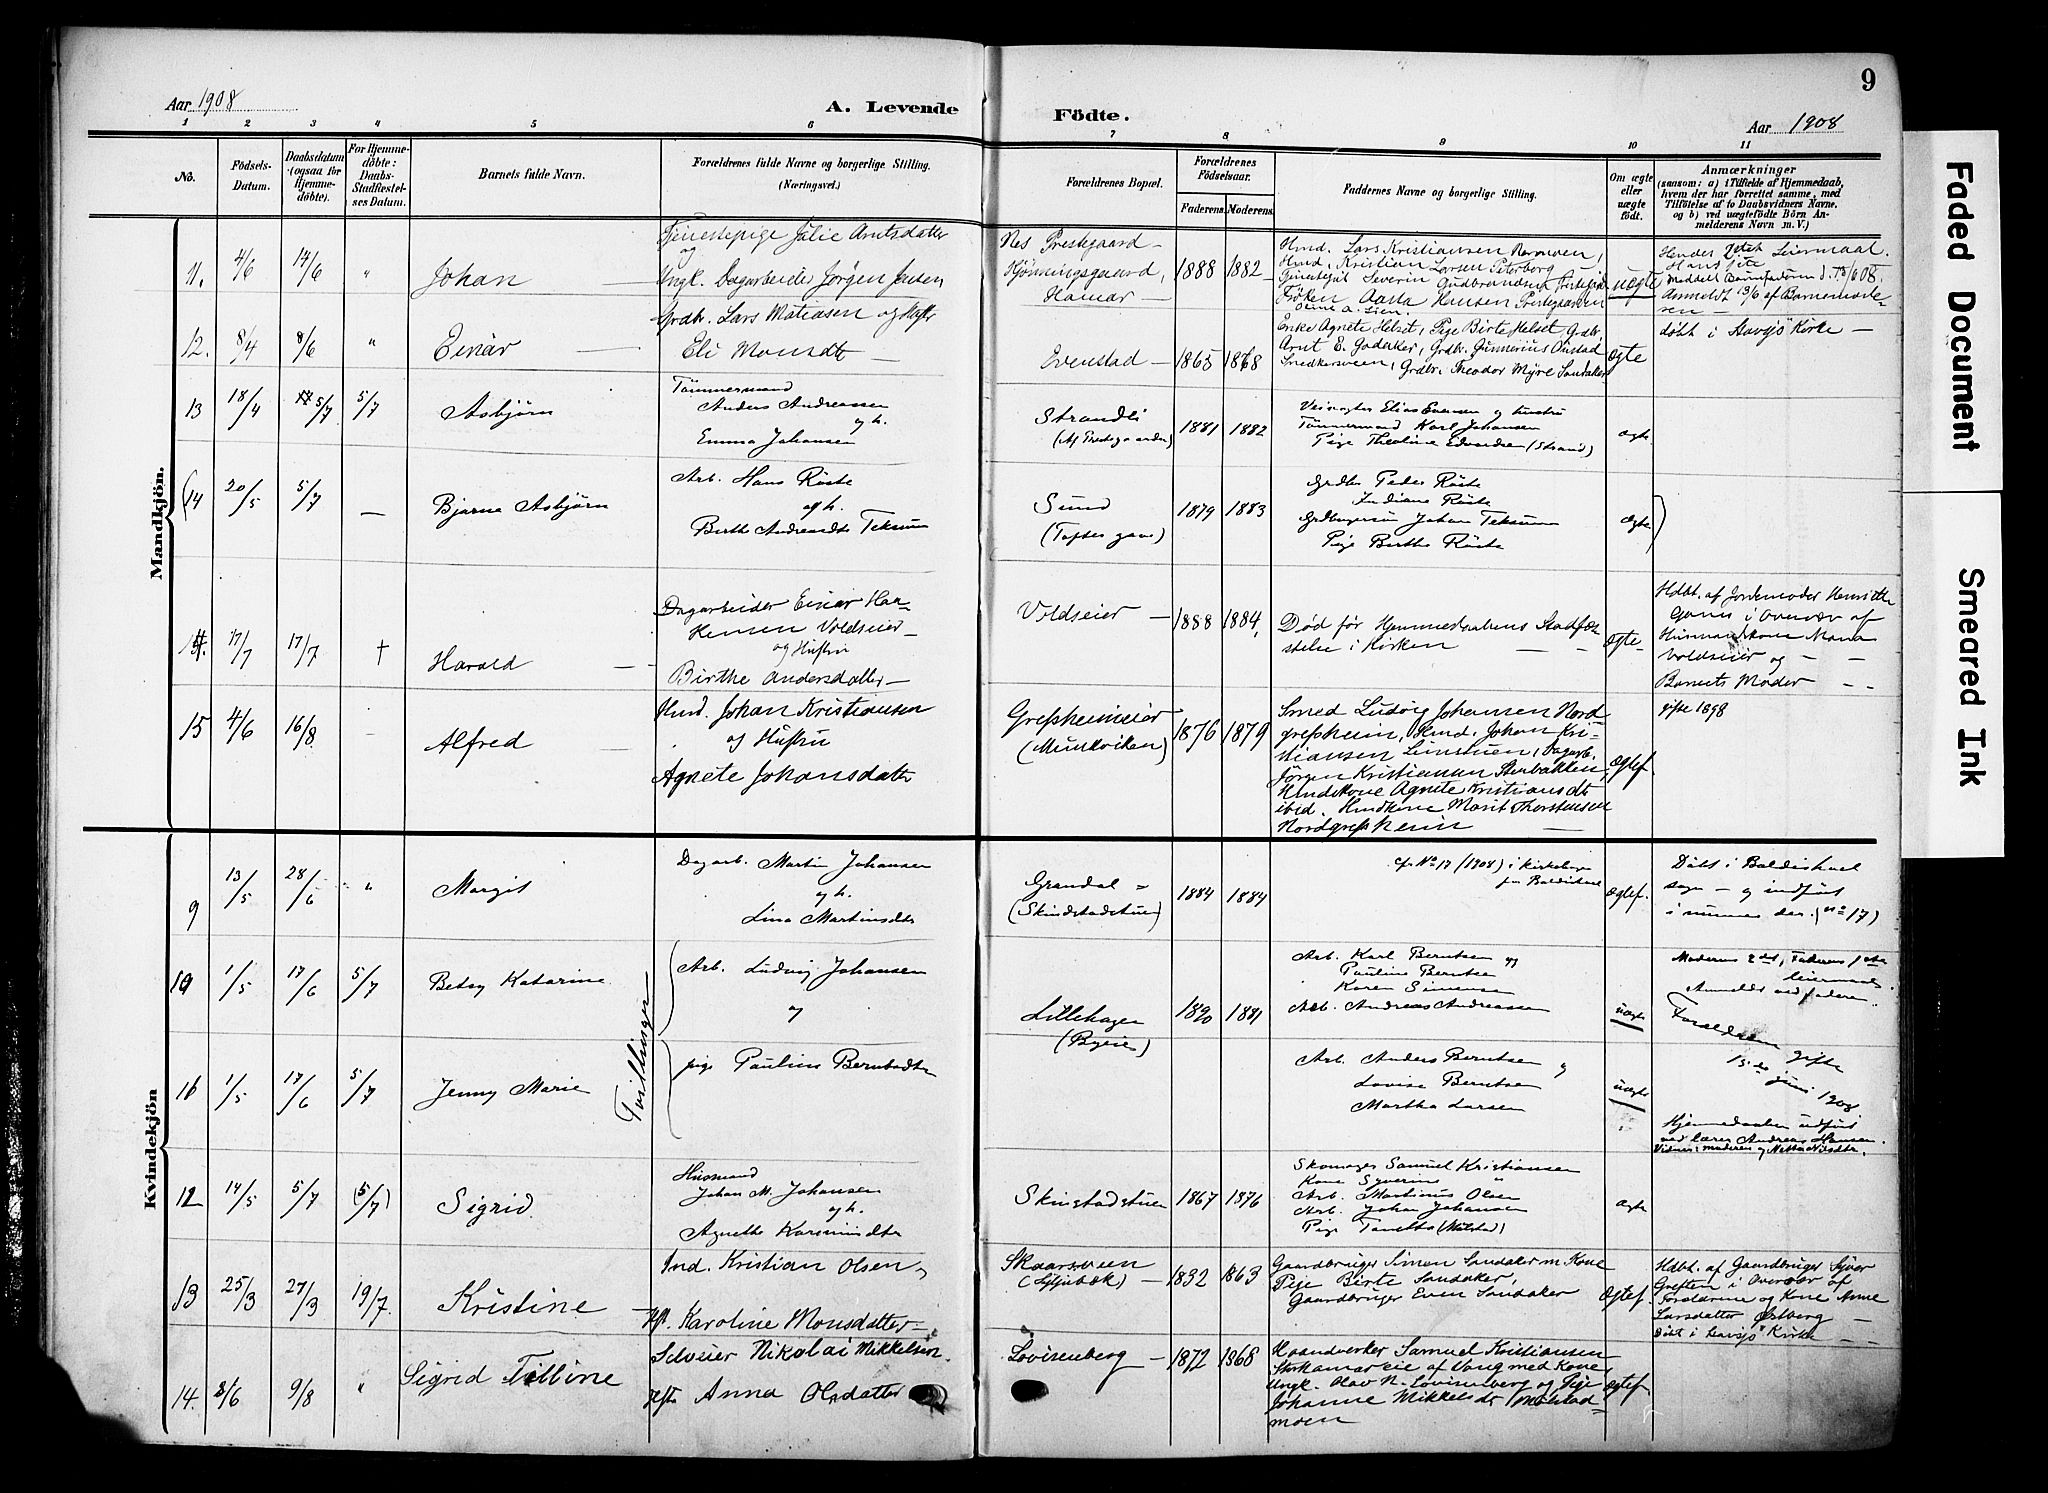 Aar 1908
A. Levende
Födte.
9
Aar 1908
1 2 3 4 5 6 7 8 9 10 11
No.
Födsels-
Datum.
Daabsdatum
(ogsaa for
Hjemme-
döbte).
For Hjemme-
döbte:
Daabs-
Stadfæstel-
ses Datum.
Barnets fulde Navn.
Forældrenes fulde Navne og borgerlige Stilling.
(Næringsvei.)
Forældrenes Bopæl.
Forældrenes
Födselsaar.
Faderens. Moderens.
Faddernes Navne og borgerlige Stilling.
Om ægte
eller
uægte
født.
Anmærkninger
(saasom: a) i Tilfælde af Hjemmedaab,
hvem der har forrettet samme, med
Tilföielse af to Daabsvidners Navne,
og b) ved uægtefödte Börn An-
melderens Navn m. V.)
Mandkjön.
11. 4/6 14/6 " Johan
Tjenestepige Julie Amtsdatter
og
Ungk. Dagarbeider Jørgen Jensen
Nes Prestegaard -
Hjønningsgaard,
Hamar -
1888 1882
Hmd. Lars Kristiansen
Hmd. Kristian Larsen Peterborg -
Tjenestejut Severin Gudbrandsen
Frøken Aasta Hansen Prestegaarden
uægte
Hendes 2det Leiermaal.
Hans 1ste
Anmeldt 13/6 af Barnemode-
ren -
12. 8/4 8/6 " Einar
Grdbr. Lars Matiasen og Hustr
Eli Monsdtr -
Evenstad - 1865 1868
Enke Agnete Helset, Pige Birte Helset, Grdbr.
Arnt E. Goderker, Grdbr. Gunnerius Onstad
Smedkersveen, Grdbr. Theodor Myre Sandaker
ægte
døbt i Stavsjø Kirke -
13 18/4 5/7 5/7 Asbjørn
Tömmermand
Anders Andreassen
og h.
Emma Johansen
Strandli
(Af Prestegaarden)
1881 1882
Veivogter Elias Evensen og hustru
Tömmermand Karl Johansen
Pige Theoline Edvardsen (Strand)
ægte
14 20/5 5/7 - Bjarne Asbjörn
Arb. Hans Röste
og h.
Berth Andreasdtr Teksum
Sund
(Toftes gave)
1879 1883
Grdbr Peder Röste
Indiane Röste
Johan Teksum
Pige Berthe Röste
ægte
17/7 17/7 † Harald
Dagarbeider Einar Haa-
kensen Voldseier -
og Hustru
Birthe Andersdatter -
Voldseier - 1888 1884
Død før Hjemmedaabens Stadfæ-
stelse i Kirken
ægte -
Hdbt. af Jordemoder Henriette
i Overvær af
Husmandskone Maria
Voldseier og -
Barnets Moder - -
15 4/6 16/8 - Alfred
Hmd. Johan Kristiansen
og Hustru
Agnete Johansdatter
Grefsheimeier
(Munkviken)
1876 1879
Smed Ludvig Johansen Nord
grefsheim, Hmd. Johan Kri-
stiansen Linstuen, Dagarb.
Jörgen Kristiansen Stenbakken,
Hmdskone Agnete Kristiansdtr
ibid. Hmdkone Marit Thorstensen
Nordgrefsheim -
ægtef.
gifte 1898
Kvindekjön
9 13/5 28/6 " Margit
Dagarb. Martin Johansen
og h.
Lina Martinsdtr
Grandal =
(Skindstadstuen)
1884 1884
cfr No 17 (1908) i kirkebogen
for Baldishol
ægtef.
Döbt i Baldishoel
sogn - og indfört
i sammes der. (No 17)
10 1/5 17/6 5/7 Betsy Katarine
Tvillinger
Arb. Ludvig Johansen
og
pige Pauline Berntsdtr
Lillehagen
(Byeie)
1890 1881
Arb. Karl Berntsen og
Pauline Berntsen
Karen Simensen
Arb. Andreas Andreassen
uægte
Moderens 2det, Faderens 1ste
leiermaal.
Anmeldt ved faderen.
Forældrene gifte
15de juni 1908
1/5 17/6 5/7 Jenny Marie
Arb. Anders Berntsen og
Lovise Berntsen
Martha Larsen
uægte
Hjemmedaaben udfört
ved lærer Andreas Hansen.
Vidner: moderen og Netta Nilsdtr.
12 14/5 5/7 (5/7) Sigrid
Husmand
Johan M. Johansen
og h.
Agnethe Karsimisdtr
Skinstadstuen 1867 1876
Skomager Samuel Kristiansen
Kone Syverine "
Arb. Martinus Olsen
Arb. Johan Johansen
Pige (Mælstad)
ægte
13 25/3 27/3 19/7. Kristine
Ind. Kristian Olsen,
Hst. Karoline Monsdatter -
Skaarsveen
1832 1863
Gaardbruger Simen Sandaker m Kone
Pige Birte Sandaker,
Gaardbruger Even Sandaker
ægtef.
Hdbt. af Gaardbruger Syver
Greften i Overvær af
Forældrene og Kone Anne
Larsdatter Ørlberg -
Döbt i Stavsjö Kirke - -
14. 8/6 9/8 " Sigrid Tilline
Selveier Nikolai Mikkelsen
Hstr Anna Olsdatter
Lovisenberg - 1872 1868
Haandverker Samuel Kristiansen
Storhamar eie af Vang med Kone,
Ungk. Olav N. Lovisenberg og Pige
Johanne Mikkelsdtr Mælstad-
moen
ægtef.
Faded Document
Smeared Ink